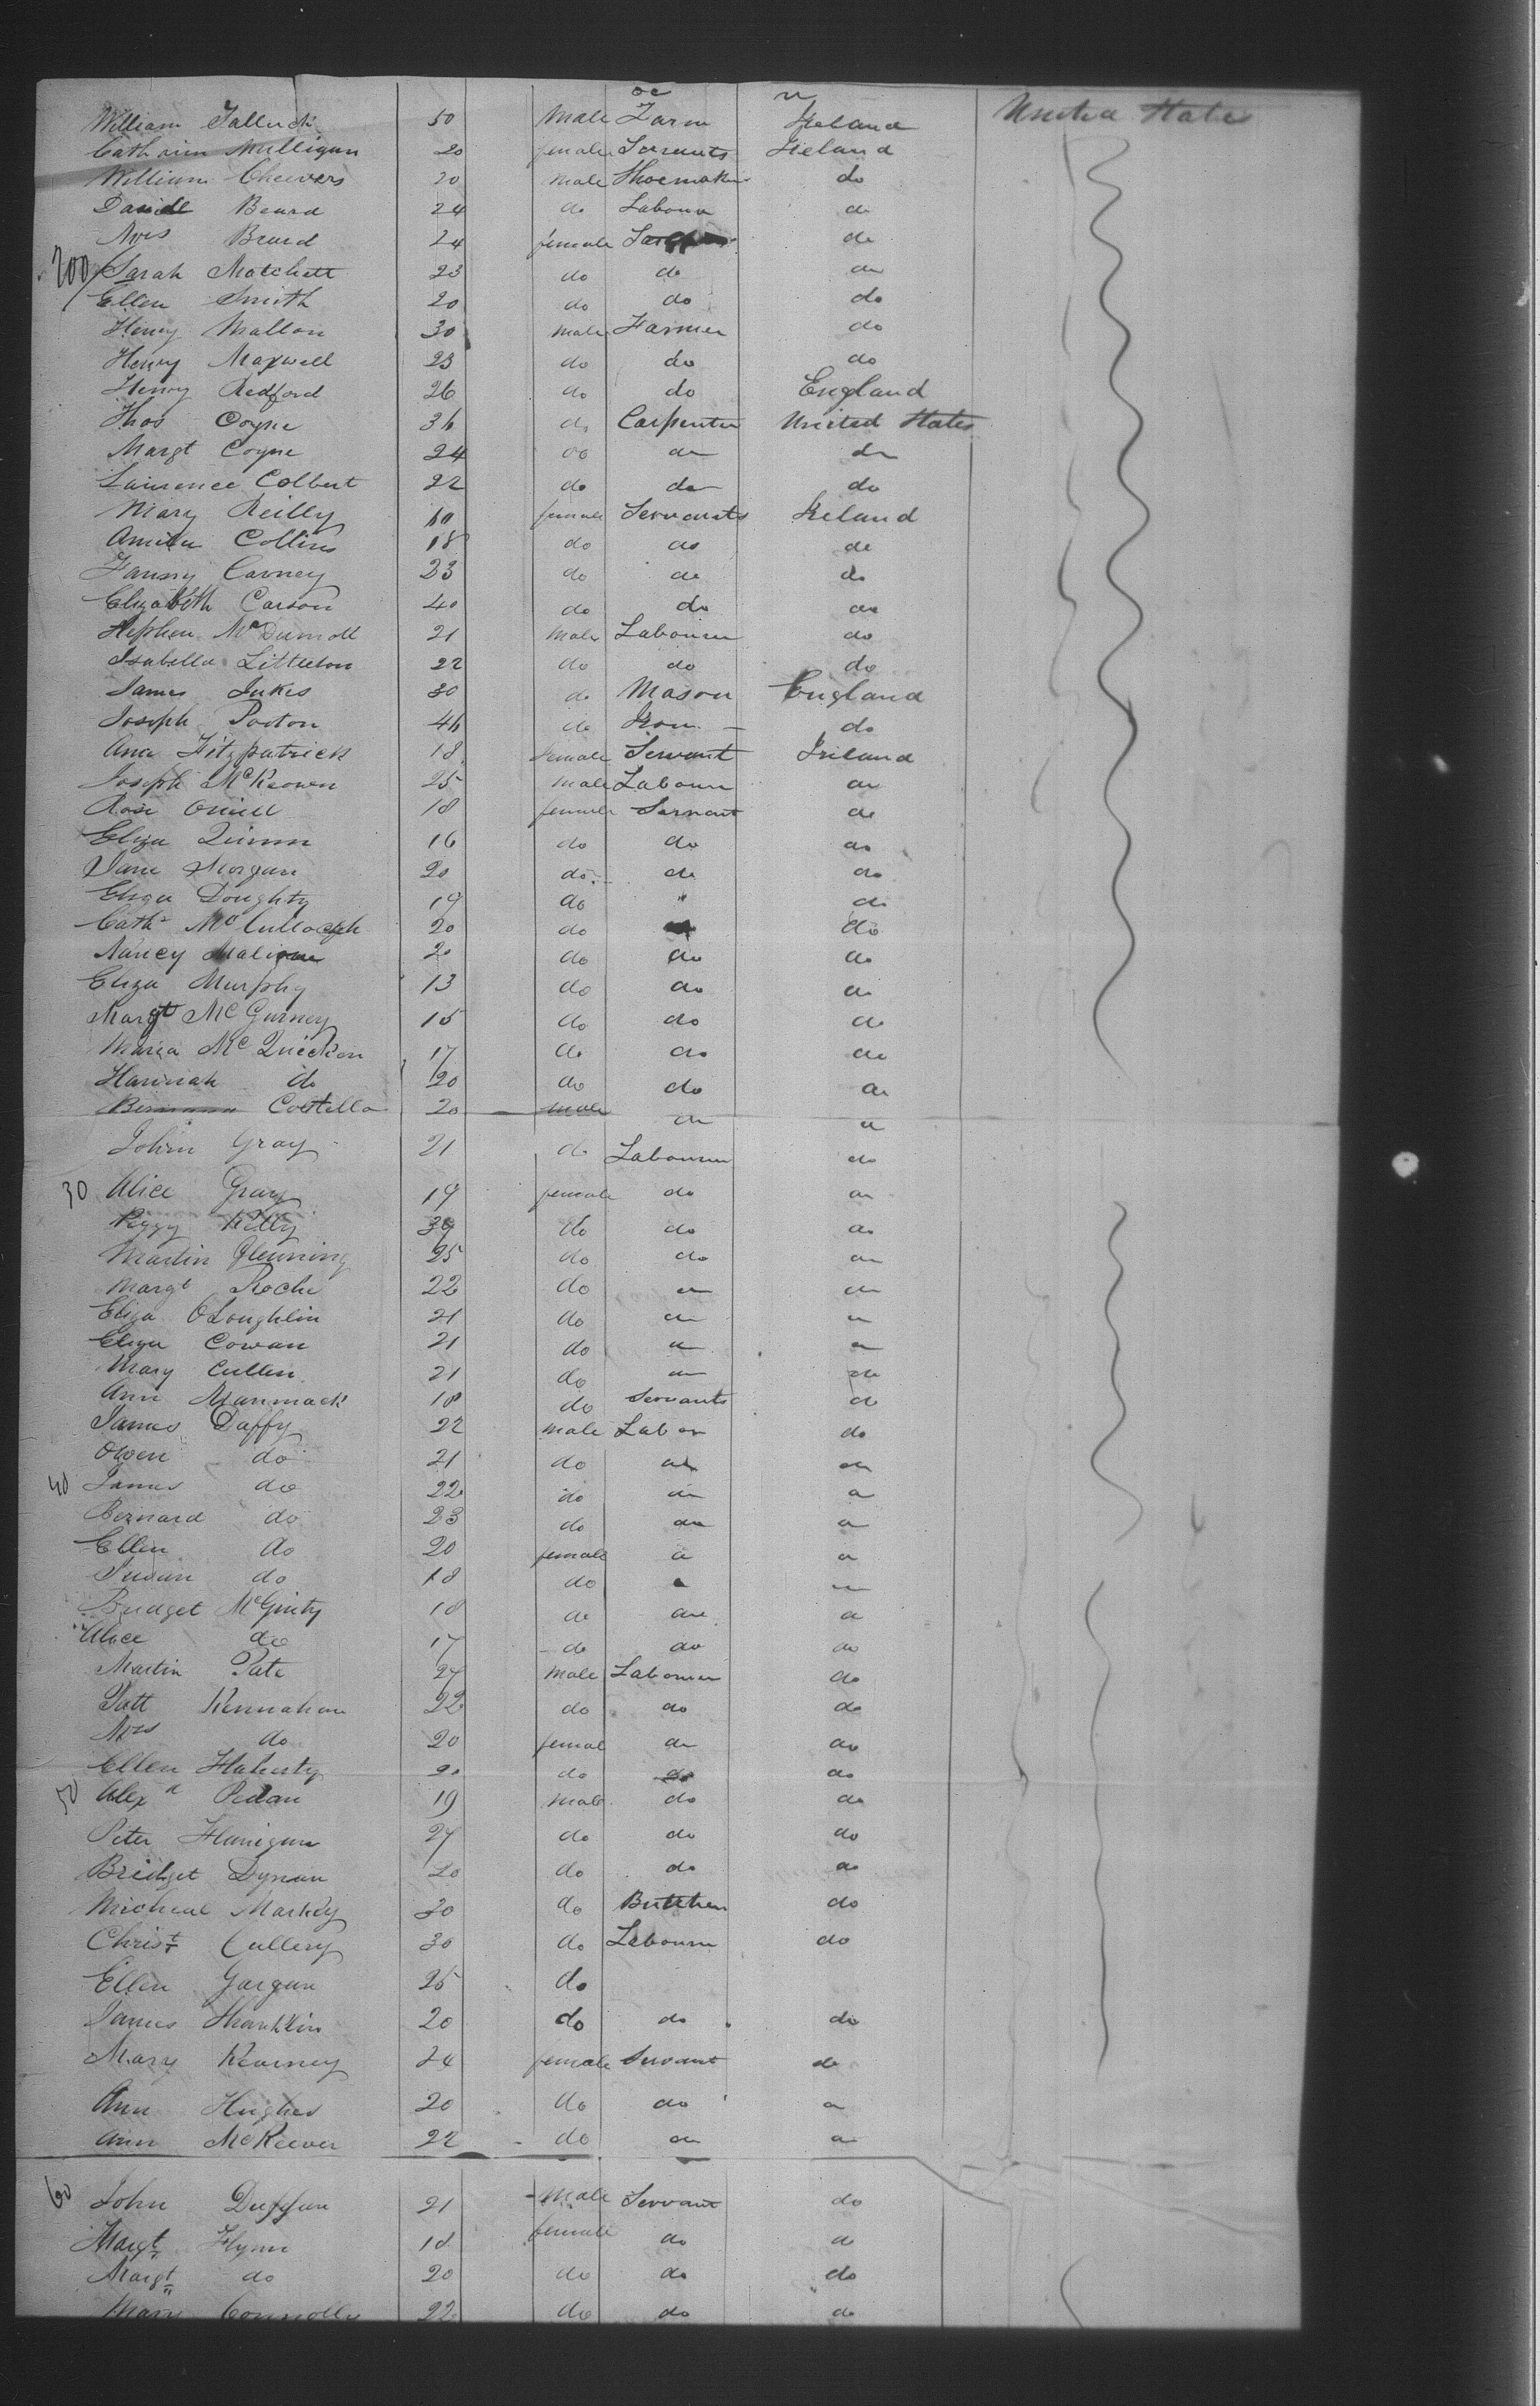 oc
William Tallack 50 Male Farm Ireland United States
Catharin Mulligan 20 female Servants Ireland
William Cheevers 20 Male Shoemaker do
Daniel Beard 24 do Labour do
Mrs Beard 24 female do
200 Sarah Matchett 23 do do do
Ellen Smith 20 do do do
Henry Mallon 30 male Farmer do
Henry Maxwell 23 do do do
Henry Redford 26 do do England
Thos Coyne 36 do Carpenter United States
Margt Coyne 24 do do do
Laurence Colbert 22 do do do
Mary Reilly female Servants Ireland
Amelia Collins 18 do do do
Fanny Carney 23 do do do
Elizabeth Carson 40 do do do
Stephen McDermott 21 Male Labourer do
Isabella Littleton 22 do do do
James Jukes 30 do Mason England
Joseph 46 do Iron do
Ann Fitzpatrick 18 female Servant Ireland
Joseph McKeown 25 male Labour do
Rose Oniell 18 female Servant do
Eliza Quinn 16 do do do
Jane Morgan 20 do do do
Eliza Doughty 19 do " do
Cath McCullough 20 do do
Nancy 20 do do do
Eliza Murphy 13 do do do
Margt McGurney 15 do do do
Maria McQuicken 17 do do do
Hannah do 20 do do do
Costello 20 male do do
John Gray 21 do Labourer do
30 Alice Gray 19 female do do
Peggy Kelly do do do
Martin 25 do do do
Margt Roche 22 do do do
Eliza OLoughlin 21 do do do
Eliza Cowan 21 do do do
Mary Cullen 21 do do do
Ann 18 do Servants do
James Daffy 22 male Labor do
Owen do 21 do do do
40 James do 22 do do do
Bernard do 23 do do do
Ellen do 20 female do do
Susan do 18 do do do
Bridget McGinty 18 do do do
Alice do 17 do do do
Martin Tate 27 male Labourer do
Patt 22 do do do
Mrs do 20 female do do
Ellen Flaherty 20 do do do
50 Alexr Pedan 19 male do do
Peter Flanigan 27 do do do
Bridget Dynan 20 do do do
Micheal Markey 30 do Butcher do
Christ Cullery 30 do Labourer do
Ellen Gargan 25 do
James 20 do do do
Mary Kearney 24 female Servant do
Ann Hughes 20 do do do
Ann McKeever 22 do do do
60 John Duggan 21 male Servant do
Margt Flynn 18 female do do
Margt do 20 do do do
Mary Connolly 22 do do do